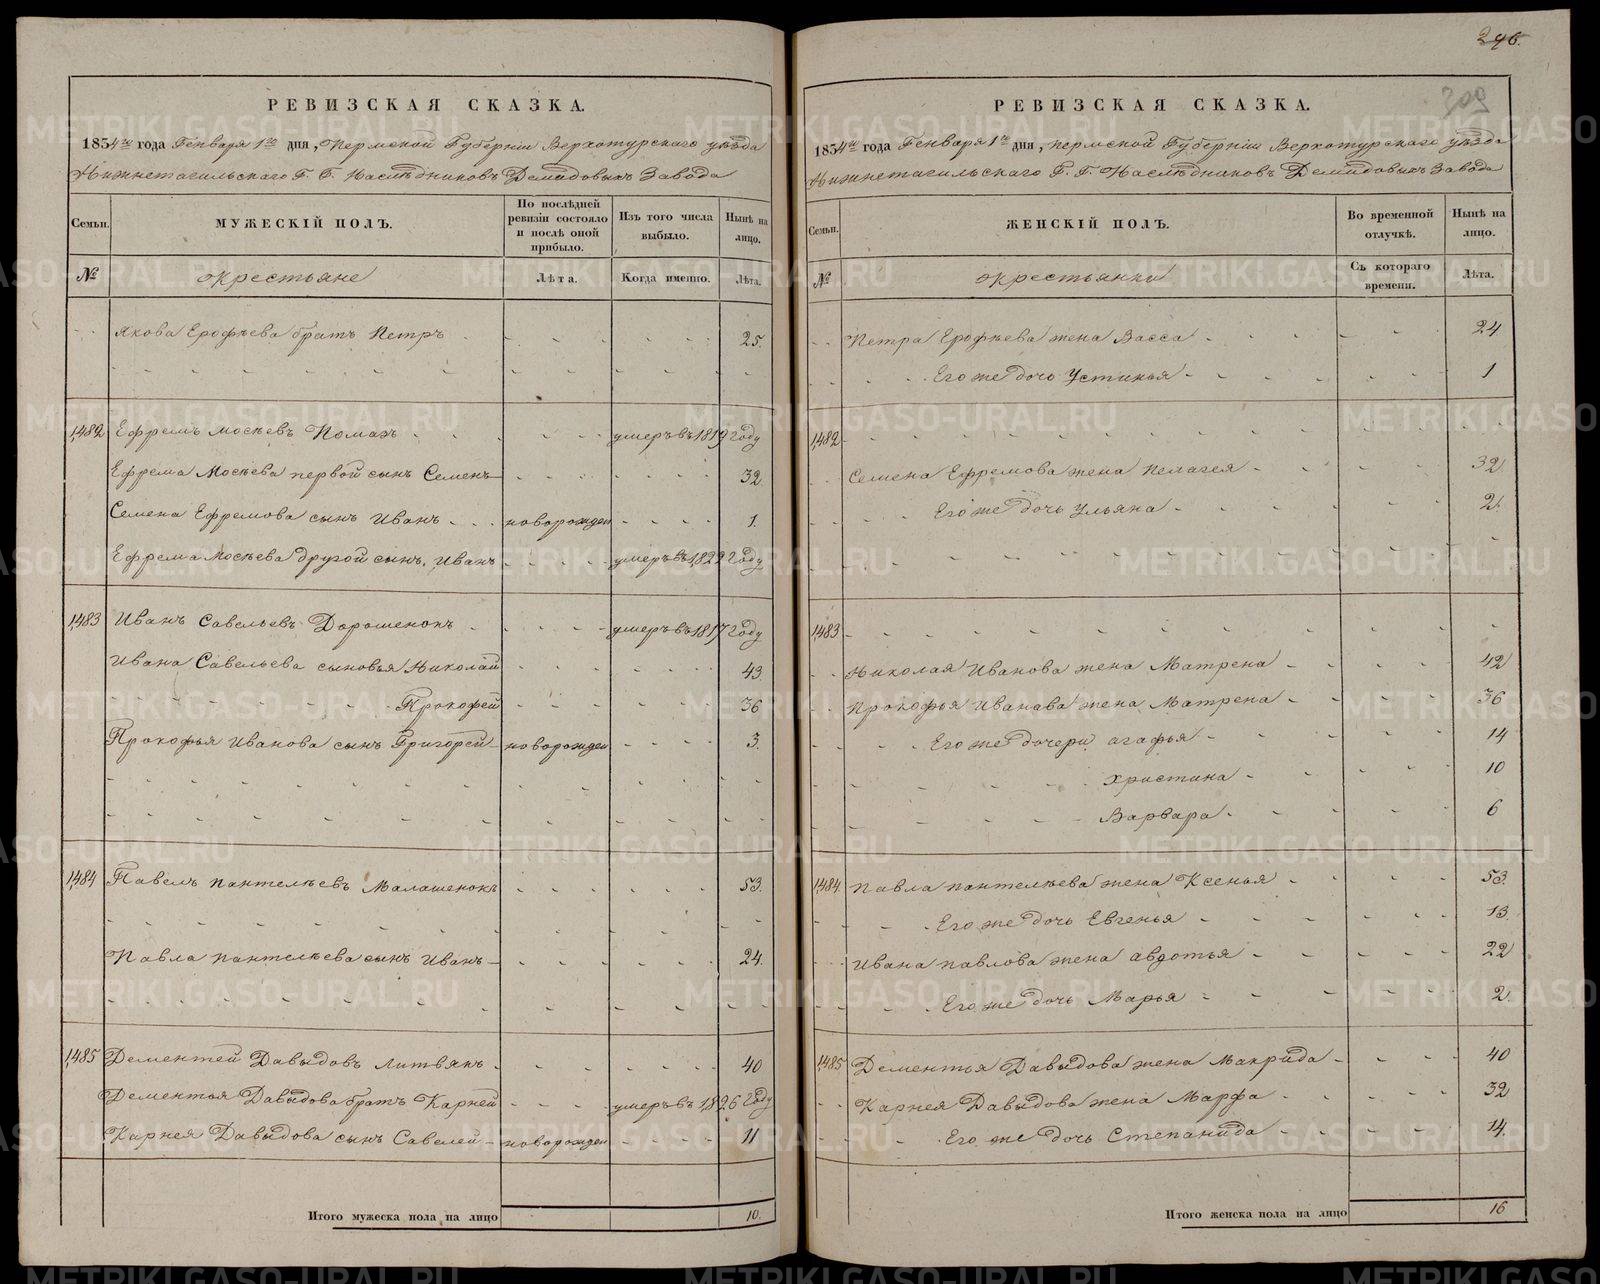 296.
309
РЕВИЗСКАЯ СКАЗКА.
1834го года Генваря 1го дня, Пермской Губерніи Верхотурскаго уѣзда
Нижнетагильскаго Г. Г. Наслѣдниковъ Демидовыхъ Завода
Семьи. МУЖЕСКІЙ ПОЛЪ. По послѣдней ревизіи состояло и послѣ оной прибыло. Изъ того числа выбыло. Нынѣ на лицо.
№ Крестьяне Лѣта. Когда именно. Лѣта.
Якова Ерофѣева братъ Петръ 25.
1482 Ефремъ Мосѣевъ умеръ въ 1819 году
Ефрема Мосѣева первой сынъ Семенъ 32.
Семена Ефремова сынъ Иванъ новорожден 1.
Ефрема Мосѣева другой сынъ Иванъ умеръ въ 1822 году
1483 Иванъ Савельевъ Дорошенокъ умеръ въ 1817 году
Ивана Савельева сыновья Николай 43.
Прокофей 36
Прокофья Иванова сынъ Григорей новорожден 3.
1484 Павелъ Пантелѣевъ Малашенокъ 53.
Павла Пантелѣева сынъ Иванъ 24.
1485 Дементей Давыдовъ Литвякъ 40
Дементья Давыдова братъ Карней умеръ въ 1826 году
Карнея Давыдова сынъ Савелей новорожден 11
Итого мужеска пола на лицо 10.
РЕВИЗСКАЯ СКАЗКА.
1834го года Генваря 1го дня, Пермской Губерніи Верхотурскаго уѣзда
Нижнетагильскаго Г. Г. Наслѣдниковъ Демидовыхъ Завода
Семьи. ЖЕНСКІЙ ПОЛЪ. Во временной отлучкѣ. Нынѣ на лицо.
№ Крестьянки Съ котораго времени. Лѣта.
Петра Ерофѣева жена Васса 24
Его же дочь Устинья 1
1482
Семена Ефремова жена Пелагея 32
Его же дочь Ульяна 2.
1483
Николая Иванова жена Матрена 42
Прокофья Иванава жена Матрена 36
Его же дочери Агафья 14
Христина 10
Варвара 6
1484. Павла Пантелѣева жена Ксенья 53.
Его же дочь Евгенья 13.
Ивана Павлова жена Авдотья 22
Его же дочь Марья 2.
1485 Дементья Давыдова жена Макрида 40
Карнея Давыдова жена Марфа 32
Его же дочь Степанида 14.
Итого женска пола на лицо 16
METRIKI.GASO-URAL.RU